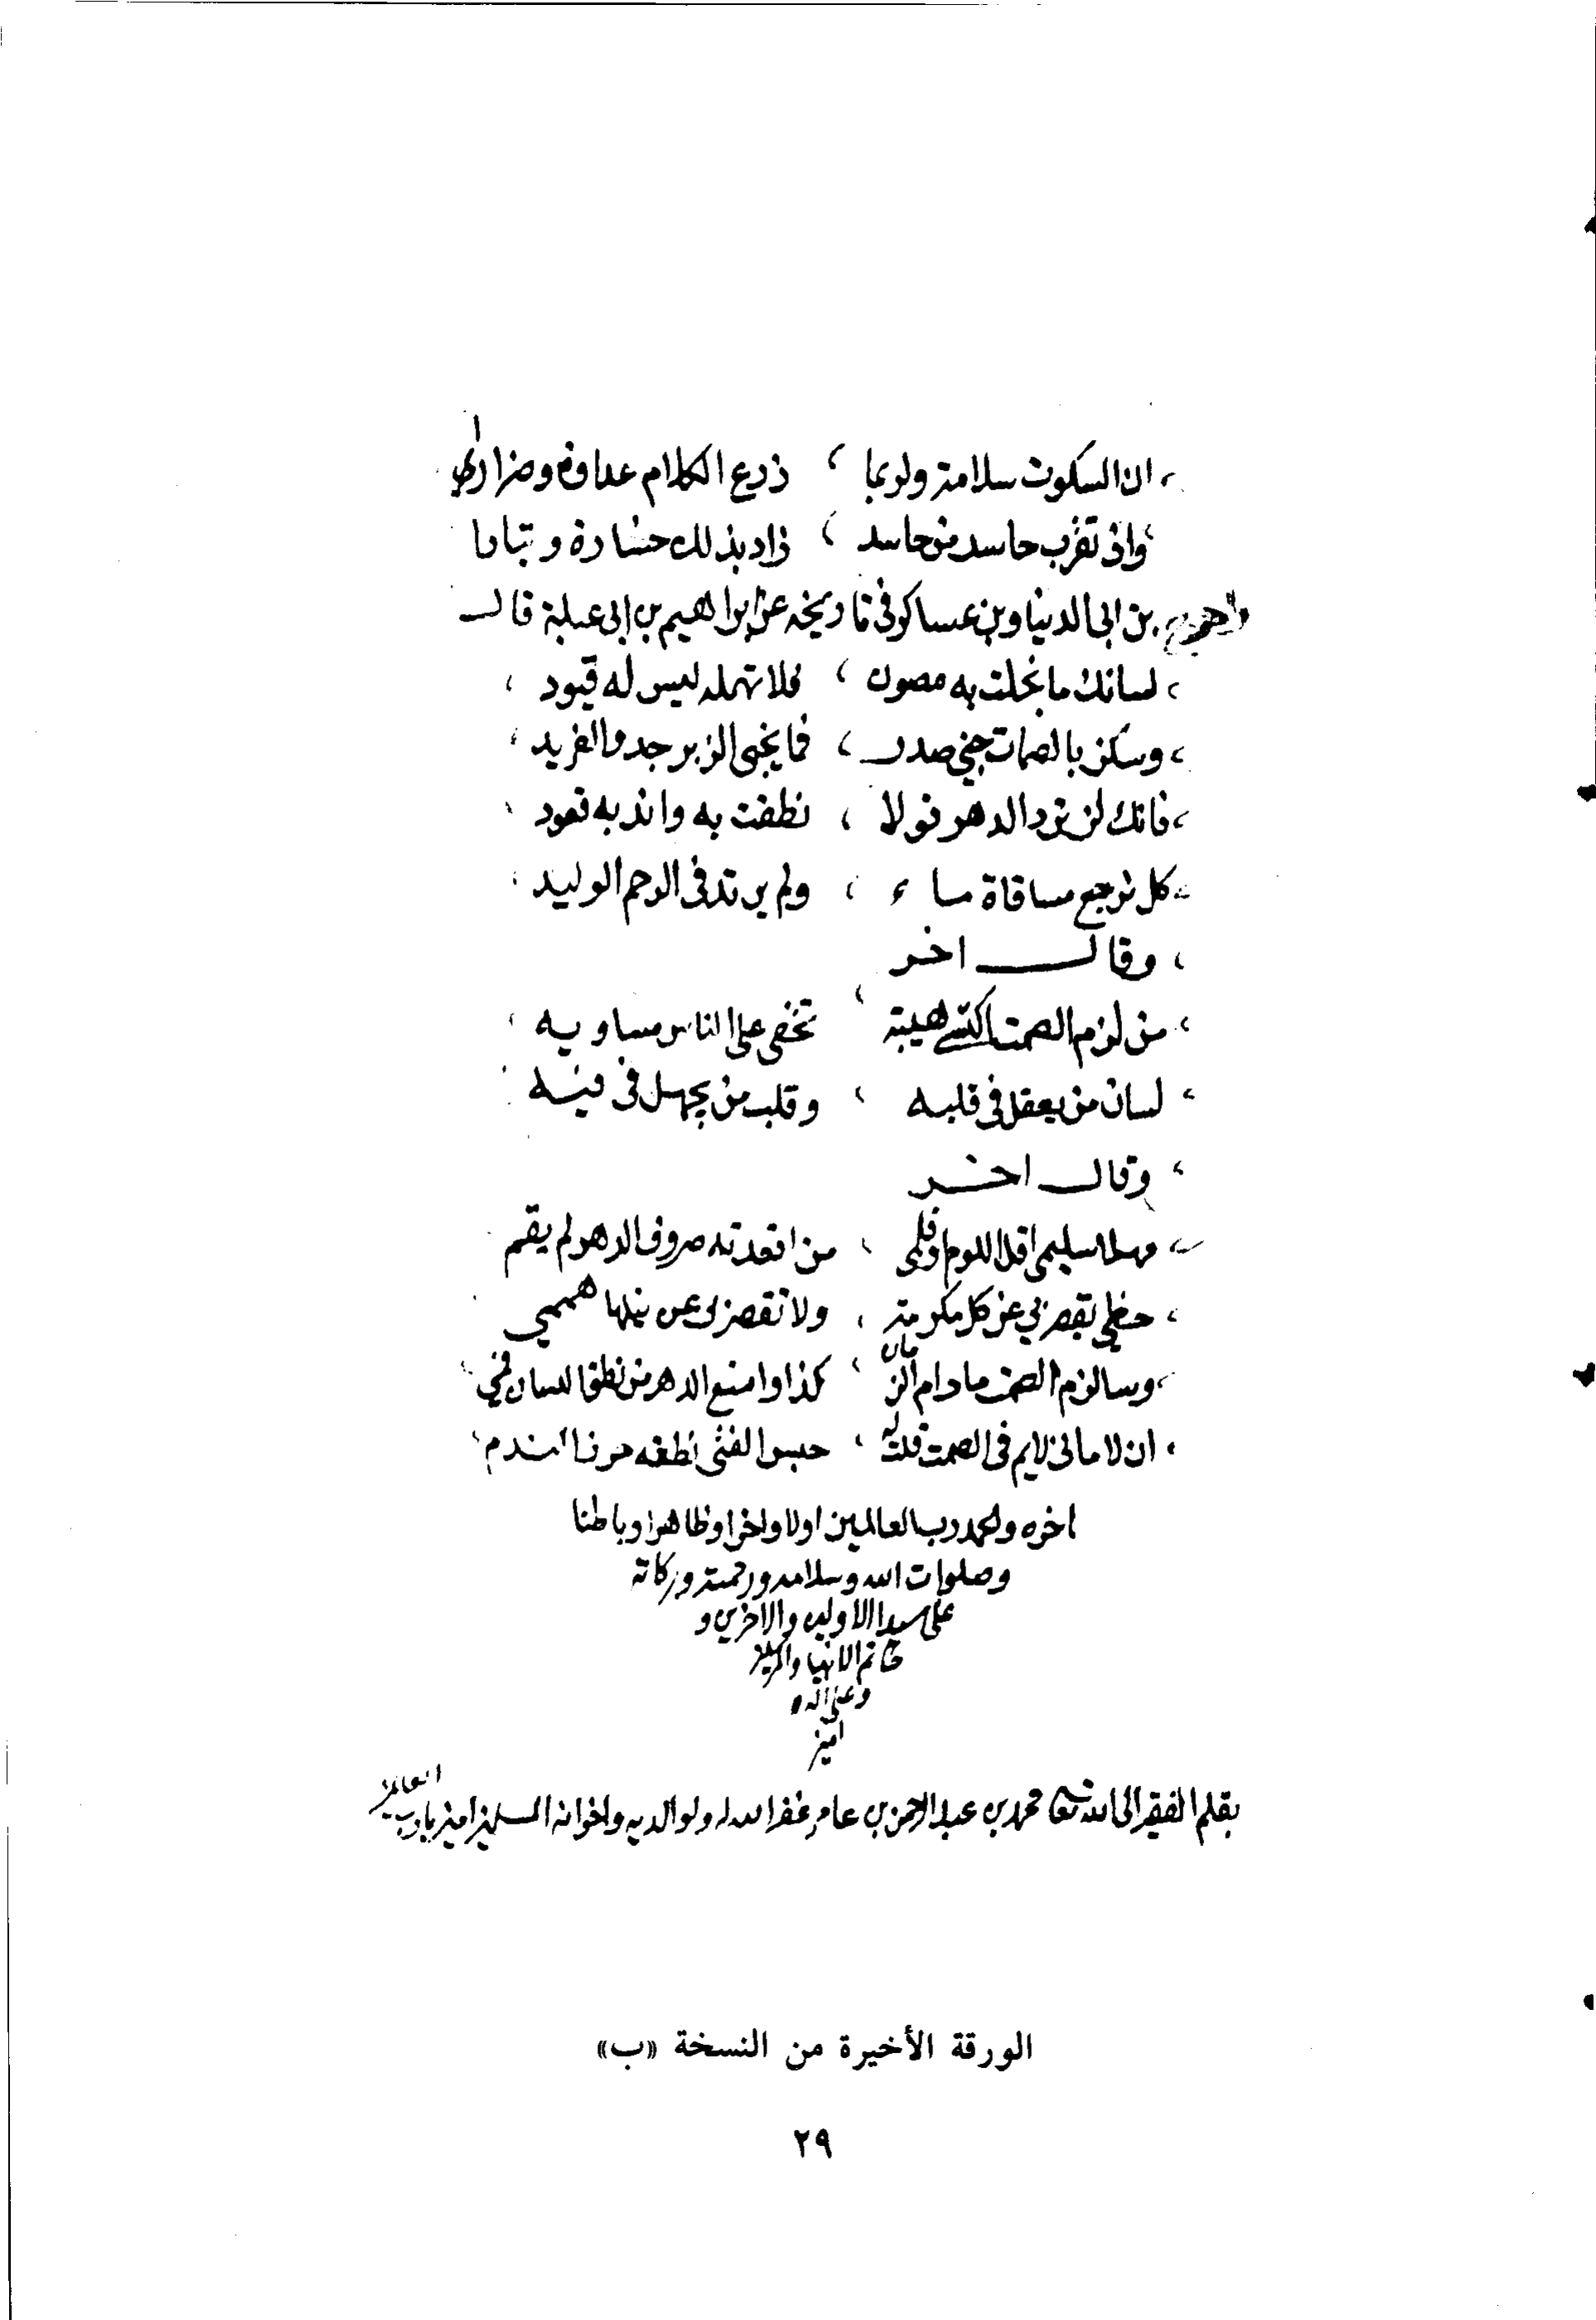 ان السكوت سلامة ولربما ، زرع الكلام عداوة وضرارا
واذ تقرب حاسد من حاسد ، زاد بذلك خسارة وتبابا
واخرج بن ابي الدنيا وبن عساكر في تاريخه عن ابراهيم بن ابي عبلة قال
لسانك ما بخلت به مصون ، فلا تهمله ليس له قيود
وسكن بالصمات صدر ، فما يخبى الزبرجد والفريد
فانك لن ترد الدهر قولا ، نطقت به واند به قعود
كل ترجع مساقاة ماء ، ولم يرتد في الرحم الوليد
وقال اخر
من لزم الصمت اكتسى هيبة ، تخفى على الناس مساويه
لسان من يعقل في قلبه ، وقلب من يجهل في فيه
وقال اخر
مهلا سليمى اقل اللوم او فلمى ، من اقعدته صروف الدهر لم يقم
حظي يقصر بي عن كل مكرمة ، ولا تقصر بى عن نيلها هممي
وسالزم الصمت مادام الزمان كذا ، وامنع الدهر من نطق لسان فمي
ان لامانى لايم فى الصمت قلت له ، حبس الفتى نطقه من الندم
اخره والحمد رب العالمين اولا واخرا وظاهرا وباطنا
وصلوات الله وسلامه ورحمته وبركاته
على سيد الاولين والاخرين و
خاتم الانبيا والمرسلين
وعلى اله
امين
بقلم الفقير الى الله تعالى محمد بن عبد الرحمن بن عامر غفر الله له ولوالديه واخوانه المسلمين امين يارب العالمين
الورقة الأخيرة من النسخة «ب»
٢٩